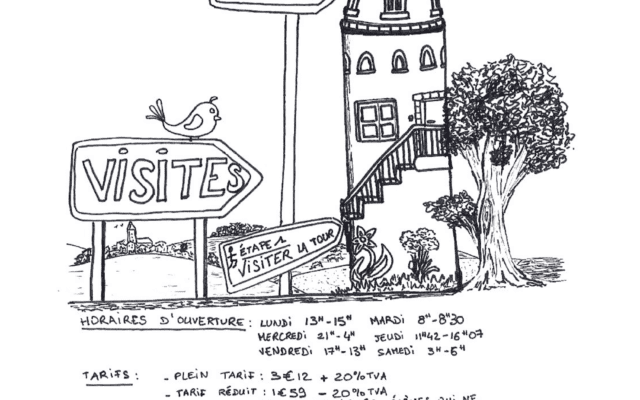 VISITES
ÉTAPE 1
VISITER LA TOUR
HORAIRES D'OUVERTURE : LUNDI 13H-15H MARDI 8H-8H30
MERCREDI 21H-4H JEUDI 11H42-16H07
VENDREDI 17H-13H SAMEDI 3H-5H
TARIFS : - PLEIN TARIF : 3€12 + 20% TVA
- TARIF RÉDUIT : 1€59 - 20% TVA
QUI NE